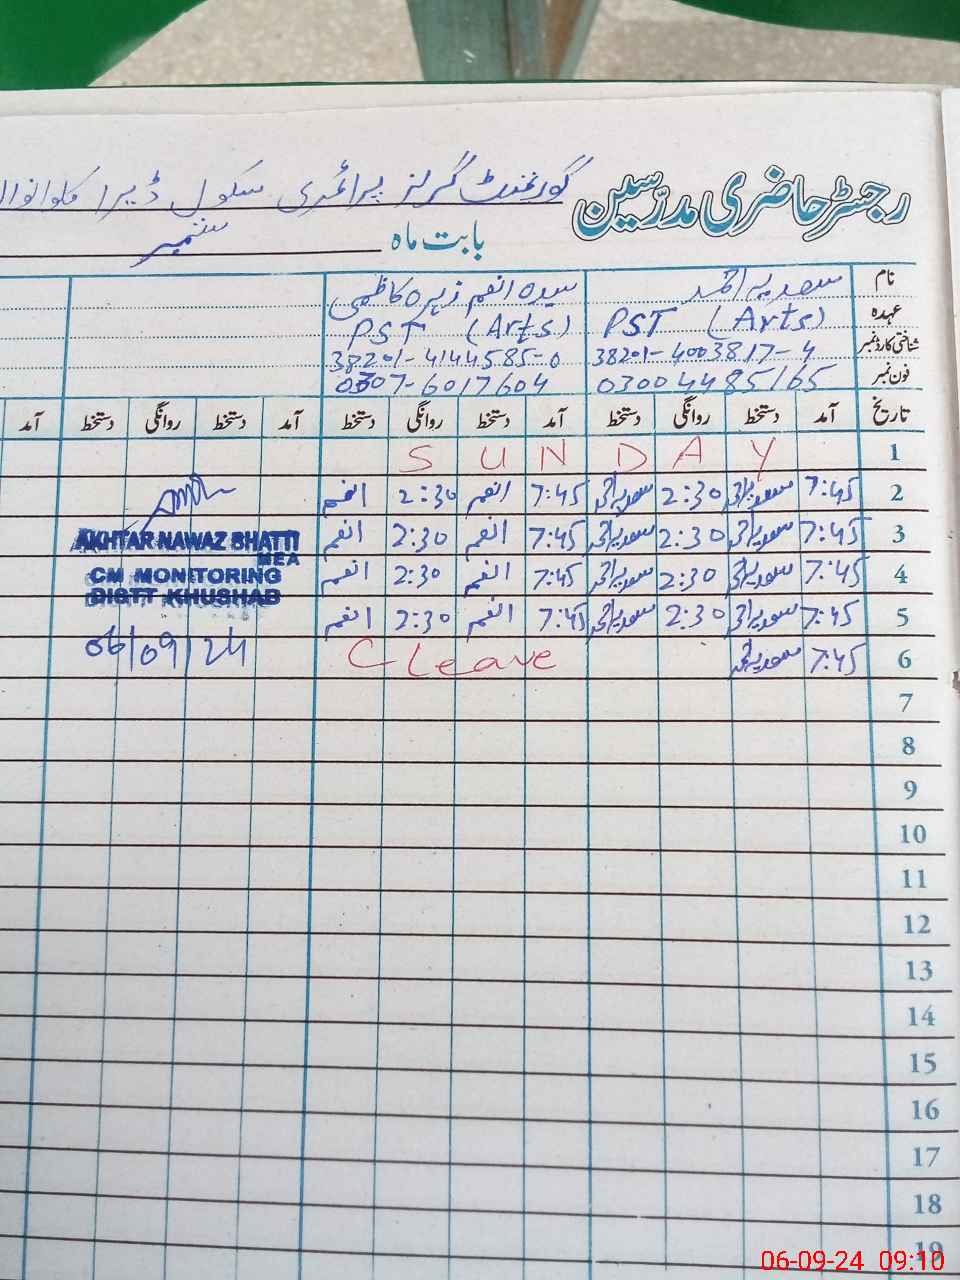 رجسٹر حاضری مدرّسین گورنمنٹ گرلز پرائمری سکول ڈیرا
بابت ماہ ستمبر
نام سعدیہ احمد سیدہ انعم زہرہ کاظمی
عہدہ PST (Arts) PST (Arts)
شناختی کارڈ نمبر 38201-4003817-4 38201-4144585-0
فون نمبر 03004485165 0307-6017604
تاریخ آمد دستخط روانگی دستخط آمد دستخط روانگی دستخط آمد دستخط روانگی دستخط آمد
1 SUNDAY
2 7:45 سعدیہ احمد 2:30 سعدیہ احمد 7:45 انعم 2:30 انعم
3 7:45 سعدیہ احمد 2:30 سعدیہ احمد 7:45 انعم 2:30 انعم
4 7:45 سعدیہ احمد 2:30 سعدیہ احمد 7:45 انعم 2:30 انعم
5 7:45 سعدیہ احمد 2:30 سعدیہ احمد 7:45 انعم 2:30 انعم
6 7:45 سعدیہ احمد C Leave
AKHTAR NAWAZ BHATTI
MEA
CM MONITORING
DISTT KHUSHAB
06/09/24
7
8
9
10
11
12
13
14
15
16
17
18
19
06-09-24 09:10